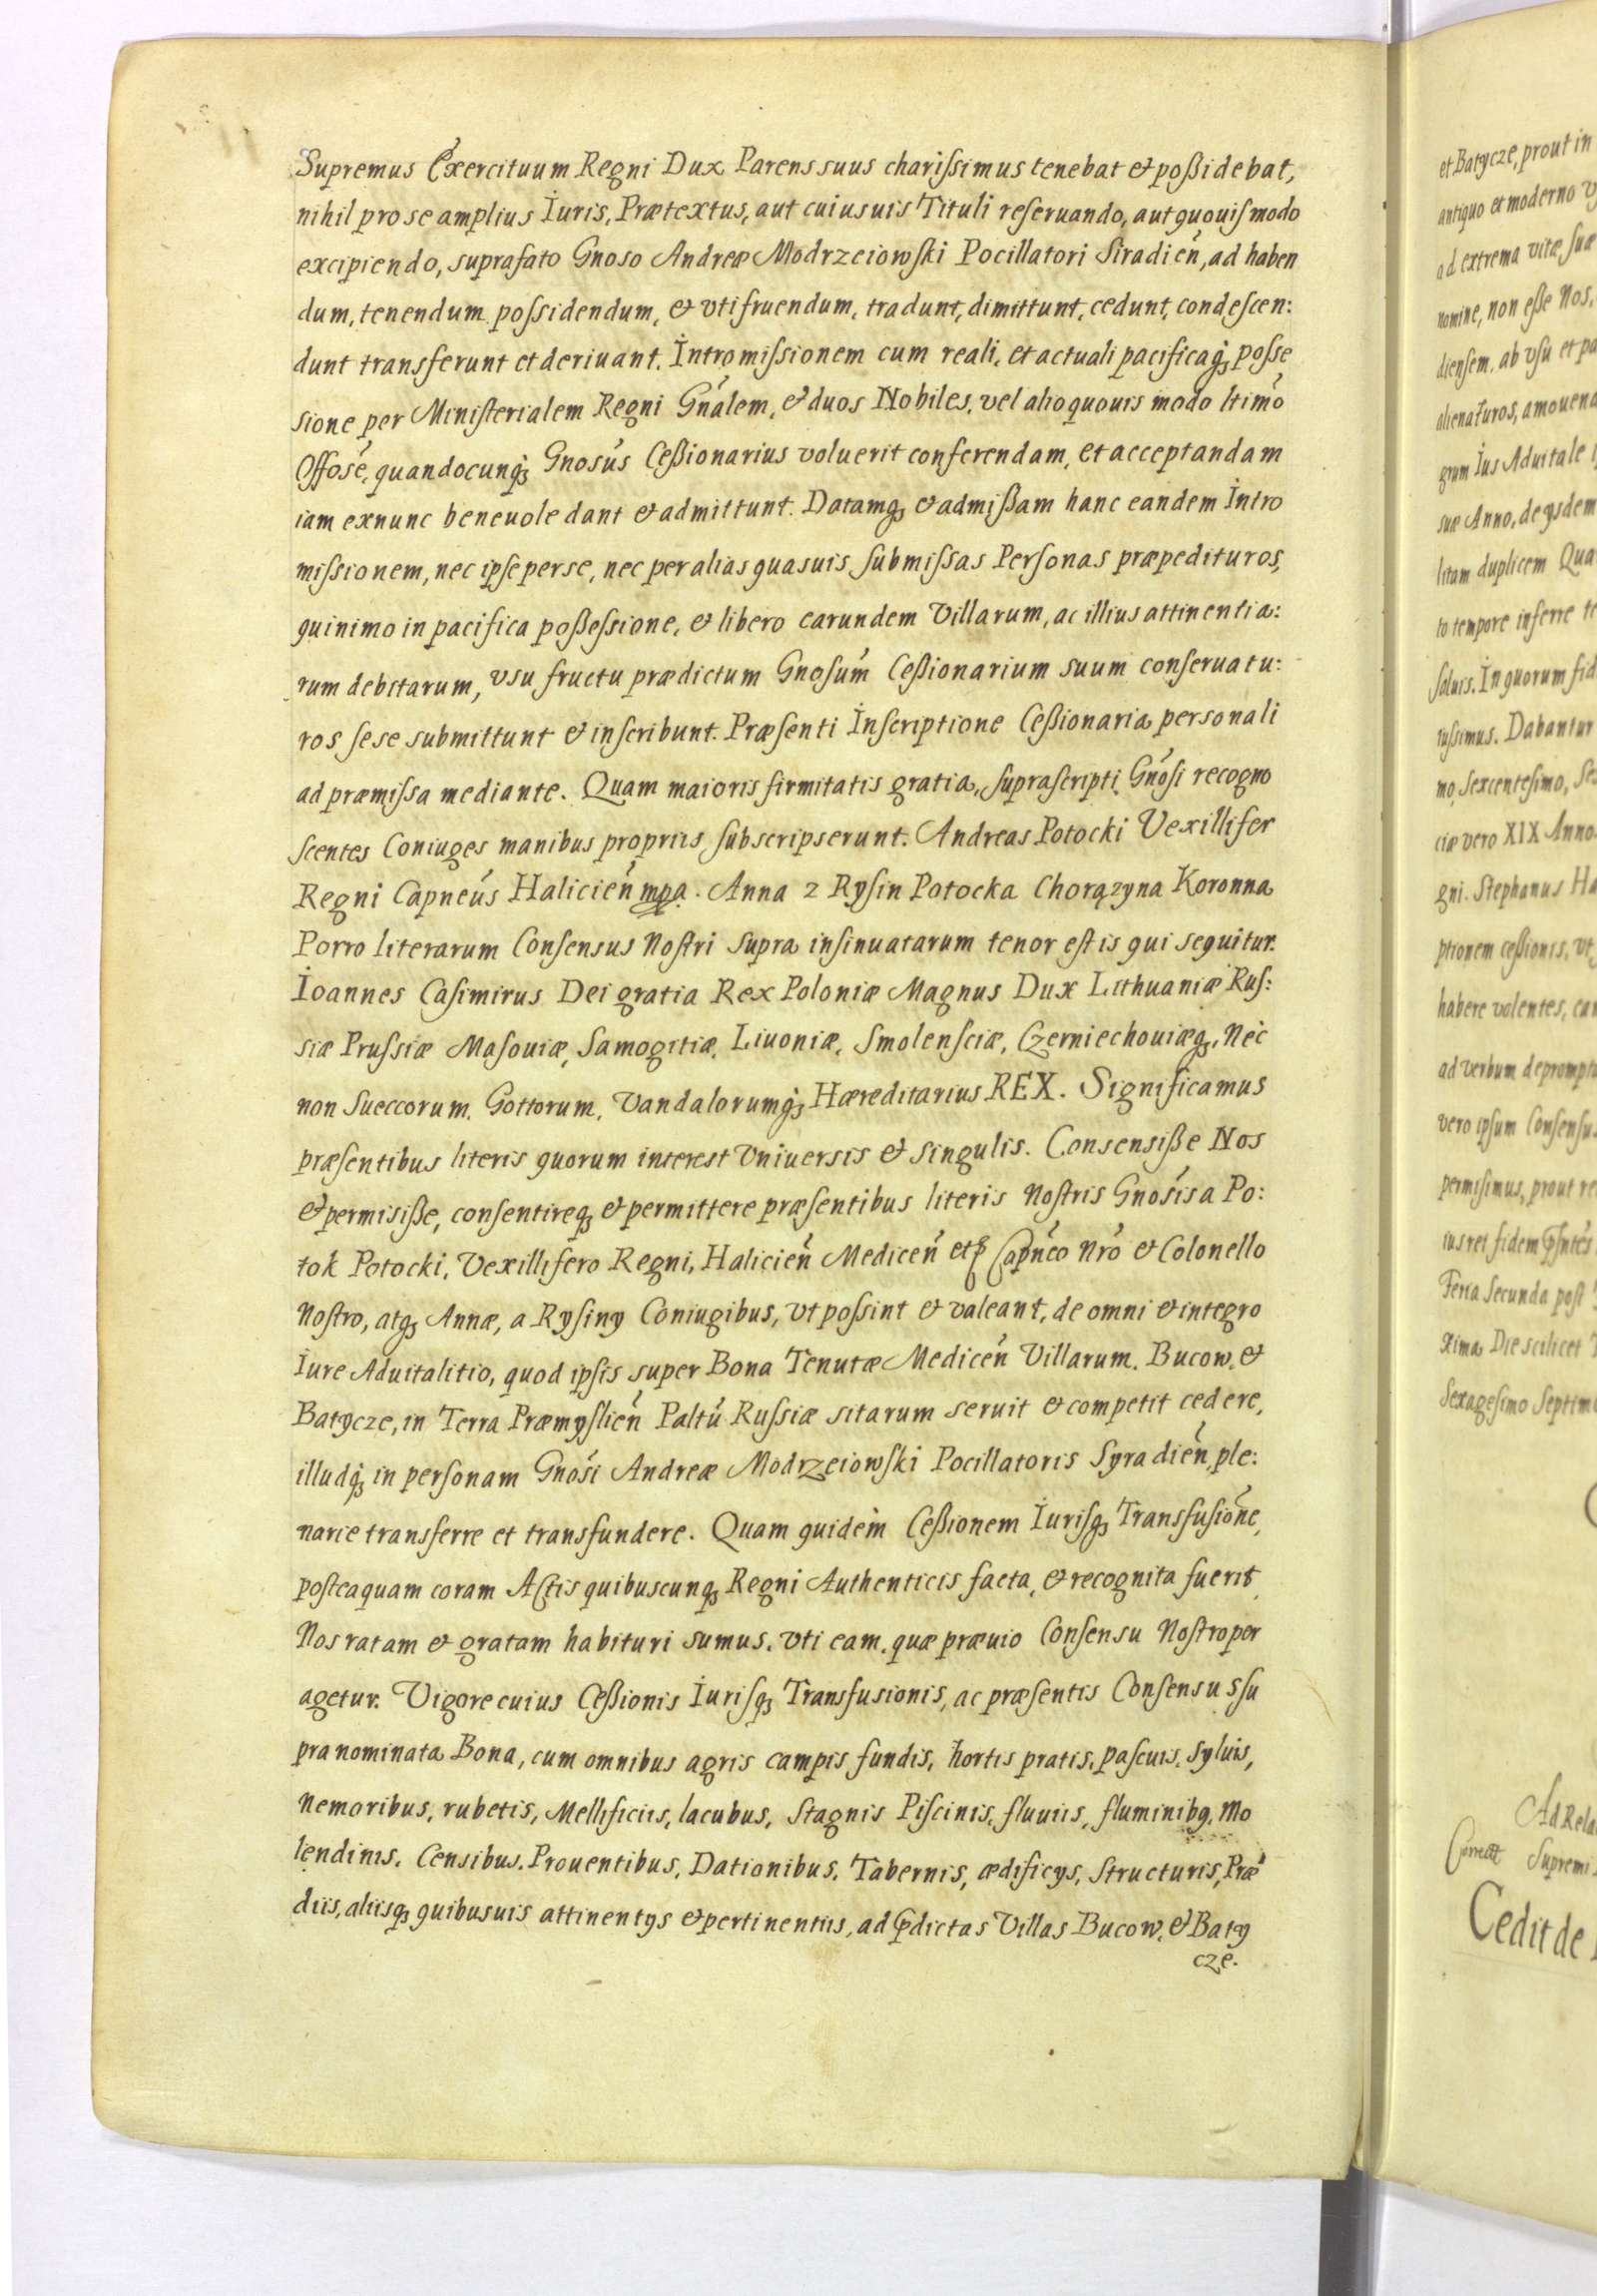 Supremus Exercituum Regni Dux Parens suus charissimus tenebat et possidebat,
nihil pro se amplius Iuris, Prætextus, aut cuiusuis Tituli reseruando, aut quouis modo
excipiendo, suprafato Gnoso Andreæ Modrzeiowski Pocillatori Siradien̄, ad haben
dum, tenendum possidendum, et vtifruendum, tradunt, dimittunt, cedunt, condescen:
dunt transferunt et deriuant. Intromissionem cum reali, et actuali pacificaq̨ posse
sione per Ministerialem Regni Gnālem, et duos Nobiles, vel alio quouis modo ltimō
Offosē, quandocunq̨ Gnosūs Cessionarius voluerit conferendam, et acceptandam
iam exnunc beneuole dant et admittunt. Datamq̨ et admissam hanc eandem Intro
missionem, nec ipse per se, nec per alias quasuis submissas Personas præpedituros,
quinimo in pacifica possessione, et libero earundem Villarum, ac illius attinentia:
rum debitarum, vsu fructu prædictum Gnosūm Cessionarium suum conseruatu:
ros sese submittunt et inscribunt. Præsenti Inscriptione Cessionaria personali
ad præmissa mediante. Quam maioris firmitatis gratia, suprascripti Gnōsi recogno
scentes Coniuges manibus propriis subscripserunt. Andreas Potocki Vexillifer
Regni Capneūs Halicien̄ mpa. Anna z Rysin Potocka Chorązyna Koronna
Porro literarum Consensus Nostri supra insinuatarum tenor est is qui sequitur.
Ioannes Casimirus Dei gratia Rex Poloniæ Magnus Dux Lithuaniæ Rus:
siæ Prussiæ Masouiæ, Samogitiæ, Liuoniæ, Smolensciæ, Czerniechouiæq̨, Nec
non Sueccorum, Gottorum, Vandalorumq̨ Hæreditarius REX. Significamus
præsentibus literis quorum interest Vniuersis et singulis. Consensisse Nos
et permisisse, consentireq̨ et permittere præsentibus literis Nostris Gnosīs a Po:
tok Potocki, Vexillifero Regni, Halicien̄ Medicen̄ etc̨ Capn̄eo Nrō et Colonello
Nostro, atq̨ Annæ, a Rysiny Coniugibus, vt possint et valeant, de omni et integro
Iure Aduitalitio, quod ipsis super Bona Tenutæ Medicen̄ Villarum. Bucow, et
Batycze, in Terra Præmyslien̄ Paltū Russiæ sitarum seruit et competit cedere,
illudq̨ in personam Gnosī Andreæ Modrzeiowski Pocillatoris Syradien̄, ple:
narie transferre et transfundere. Quam quidem Cessionem Iurisq̨ Transfusionē,
posteaquam coram Actis quibuscunq̨ Regni Authenticis facta, et recognita fuerit
Nos ratam et gratam habituri sumus, vti eam, quæ præuio Consensu Nostro per
agetur. Vigore cuius Cessionis Iurisq̨ Transfusionis, ac præsentis Consensus su
pra nominata Bona, cum omnibus agris campis fundis, hortis pratis, pascuis, syluis,
Nemoribus, rubetis, Mellificiis, lacubus, Stagnis Piscinis, fluuiis, fluminibq, Mo
lendinis, Censibus, Prouentibus, Dationibus, Tabernis, ædificys, structuris, Præ
diis, aliisq̨ quibusuis attinentys et pertinentiis, ad p̄dictas Villas Bucow, et Baty
cze.
et Batycze, prout in
antiquo et moderno
ad extrema vitæ suæ
nomine, non esse Nos,
diensem, ab vsu et
alienaturos,
grum Ius Aduitale
suæ Anno, de ysdem
litam duplicem
to tempore inferre
soluis. In quorum
Dabantur
mo, Sexcentesimo,
ciæ vero XIX Anno
gni. Stephanus
ptionem cessionis,
habere volentes,
ad verbum
vero ipsum
permisimus, prout
ius rei fidem
Feria Secunda post
xima Die scilicet
Sexagesimo
Ad
Supremi
Cedit de